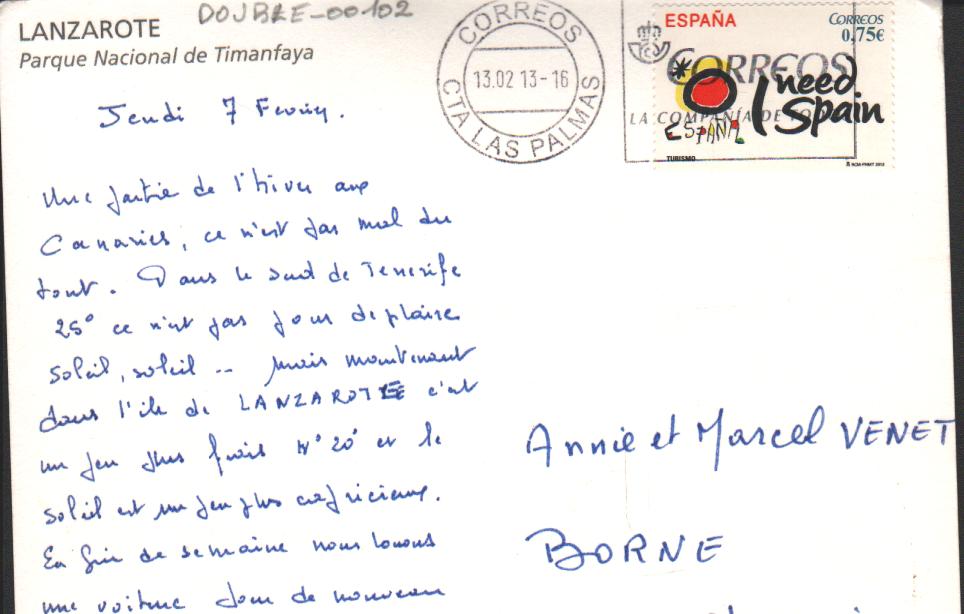 DOJBRE-00102
LANZAROTE
Parque Nacional de Timanfaya
CORREOS
13.02 13-16
CTA LAS PALMAS
ESPAÑA
CORREOS
0.75€
CORREOS
I need Spain
LA COMPAÑÍA DE
ESPAÑA
TURISMO
Jeudi 7 Février.
Une partie de l'hiver aux
Canaries, ce n'est pas mal du
tout. Dans le sud de Tenerife
25° ce n'est pas pour déplaire
soleil, soleil .. mais maintenant
dans l'île de LANZAROTE c'est
un peu plus frais 20° et le
soleil est un peu plus capricieux.
En fin de semaine nous louons
une voiture de nouveau
Annie et Marcel VENET
BORNE